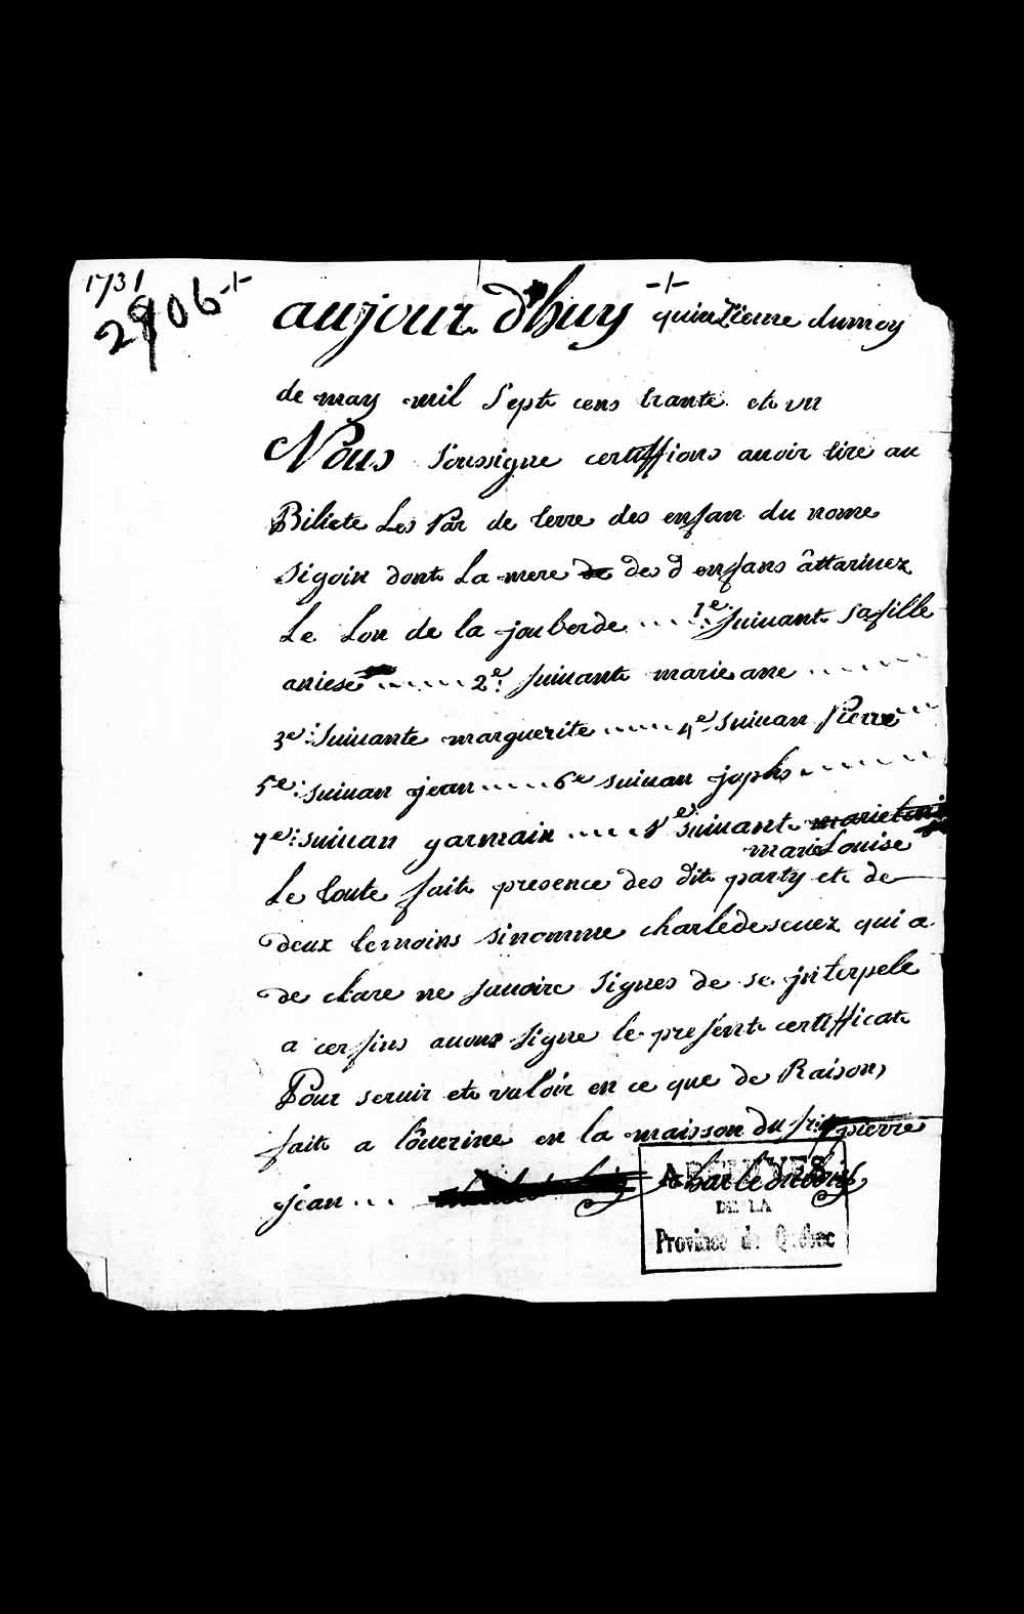 1731
2906
aujour d'huy quinzieme dumoy
de may mil sept cens trante et un
Nous soussigne certiffions auoir tire au
Biliete Les Par de terre des enfan du nome
sigoin dont La mere de des d enfans
Le Lon de la jouberde .... 1e: suiuant sa fille
aniese ...... 2e: suiuant marie ane ......
3e: suiuante marguerite ..... 4e suiuan Pierre ..
5e: suiuan jean ..... 6e suiuan joph .......
7e: suiuan garmain ..... 8e suiuant
marieLouise
Le toute fait presence des dit party et de
deux temoins sinomme charle qui a
de clare ne sauoire signes de se jnterpele
a ces fins auons signe le present certifficat
Pour seruir et valoir en ce que de Raison,
fait a en la maisson du pierre
jean ...
ARCHIVES
DE LA
Province de Québec